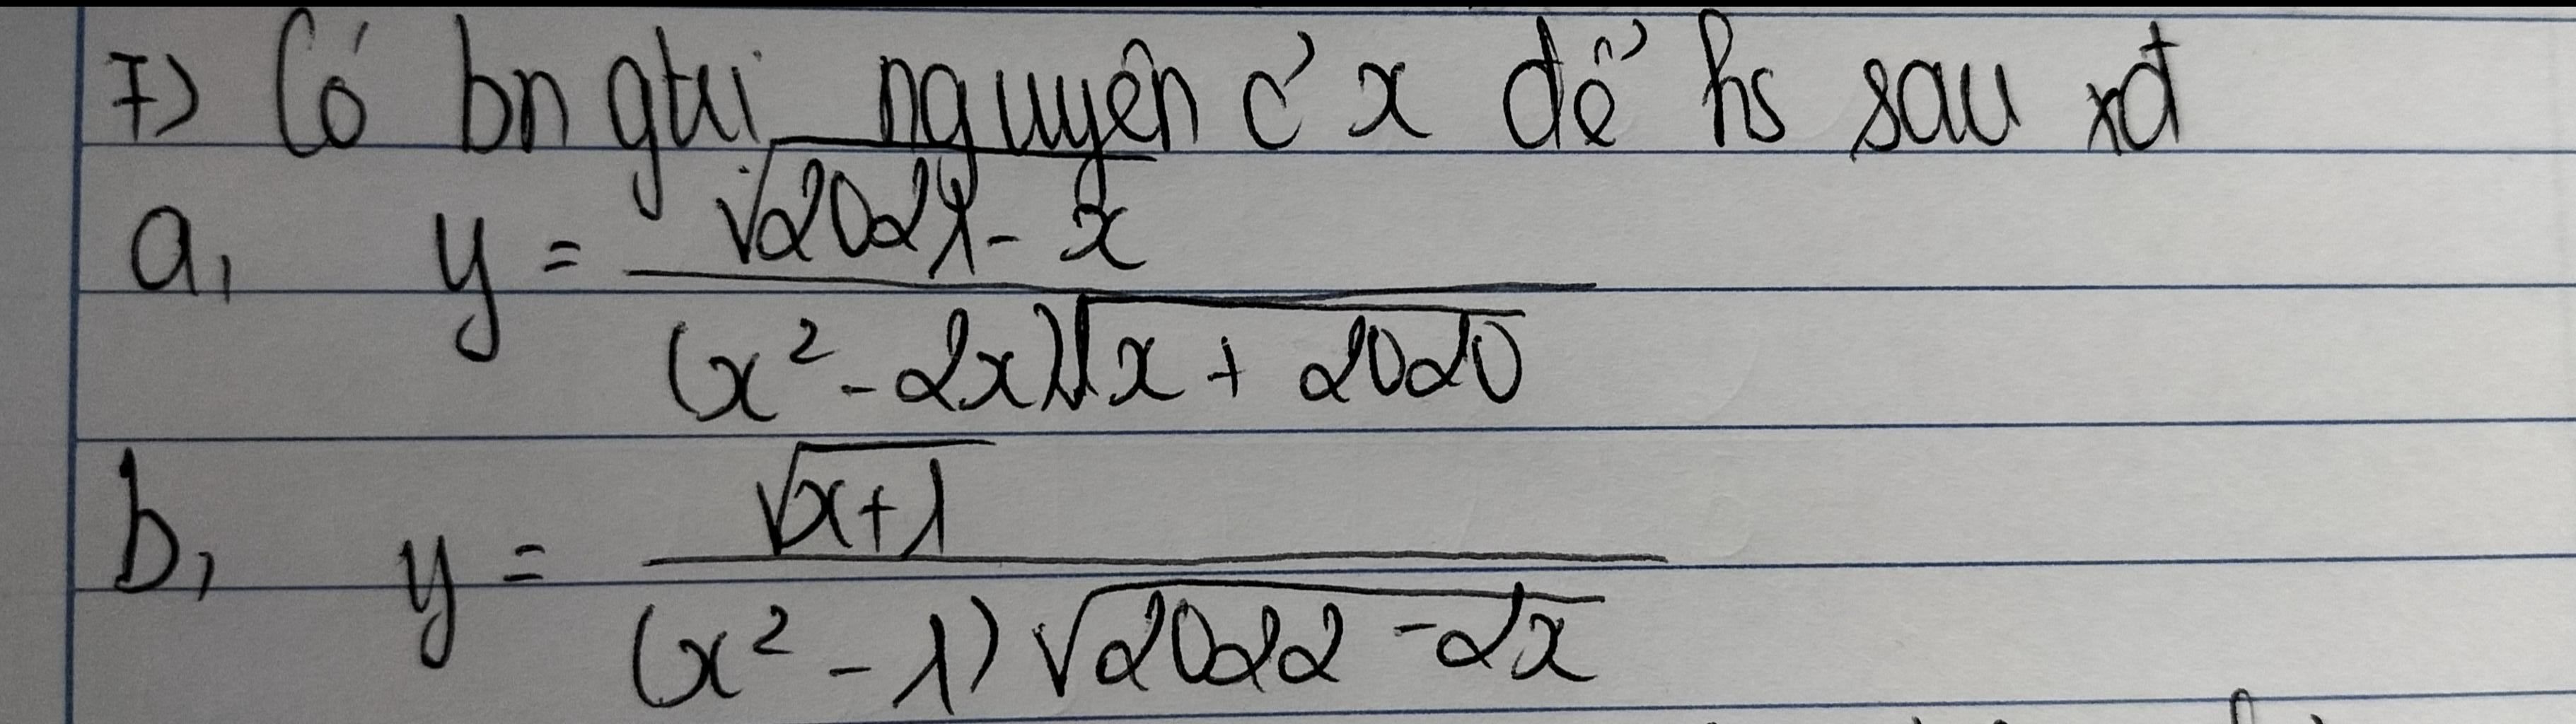 7) Có bn gtri nguyên c' x để hs sau xđ
a, y = \frac{\sqrt{2021 - x}}{(x² - 2x)\sqrt{x + 2020}}
b, y = \frac{\sqrt{x+1}}{(x² - 1)\sqrt{2022 - 2x}}